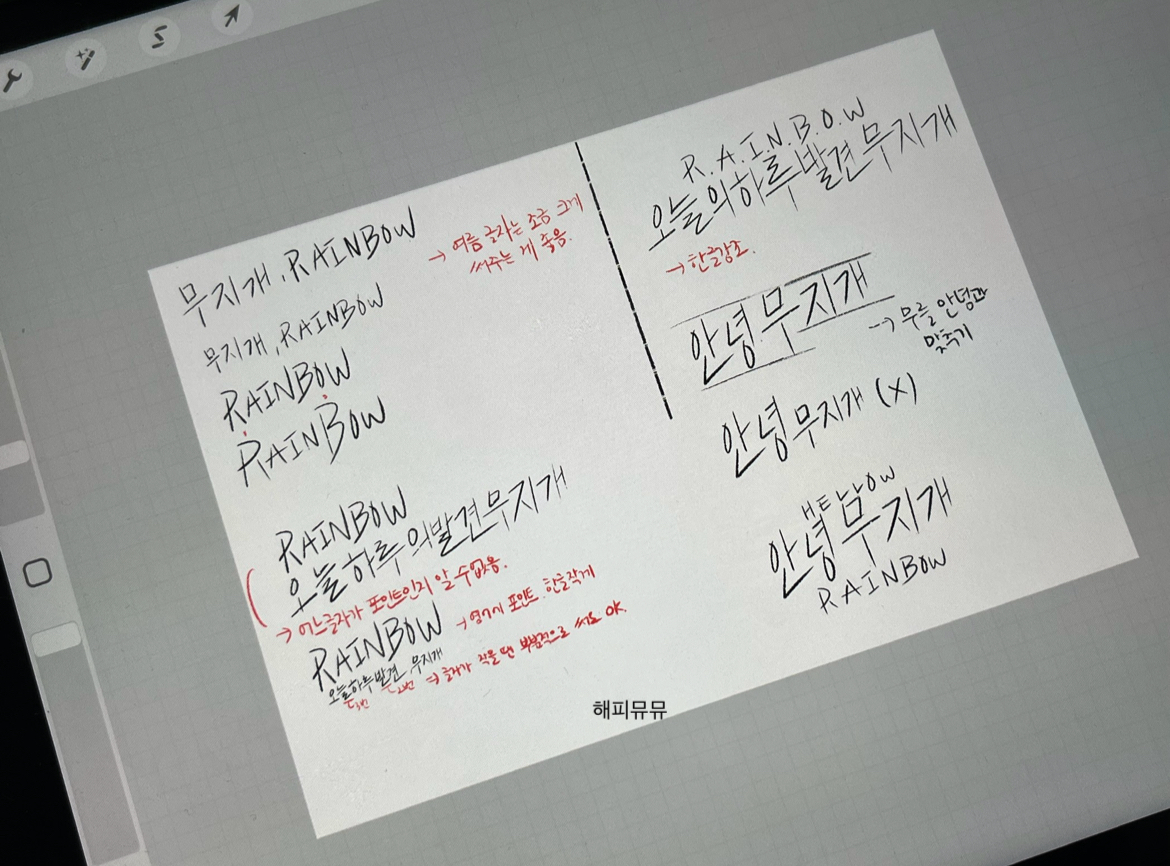 무지개, RAINBOW
→ 여름 글자는 조금 크게
써주는 게 좋음.
무지개, RAINBOW
RAINBOW
RAINBOW
RAINBOW
오늘 하루의 발견 무지개
→ 어느글자가 포인트인지 알 수 없음.
RAINBOW
→ 영어가 포인트. 한글작게
오늘하루발견, 무지개
→ 글자가 작을 땐 부분적으로 써도 OK.
R.A.I.N.B.O.W
오늘의하루발견무지개
→ 한글강조.
안녕무지개
→ 무를 안녕과
맞추기
안녕무지개 (X)
안녕무지개
RAINBOW
해피뮤뮤